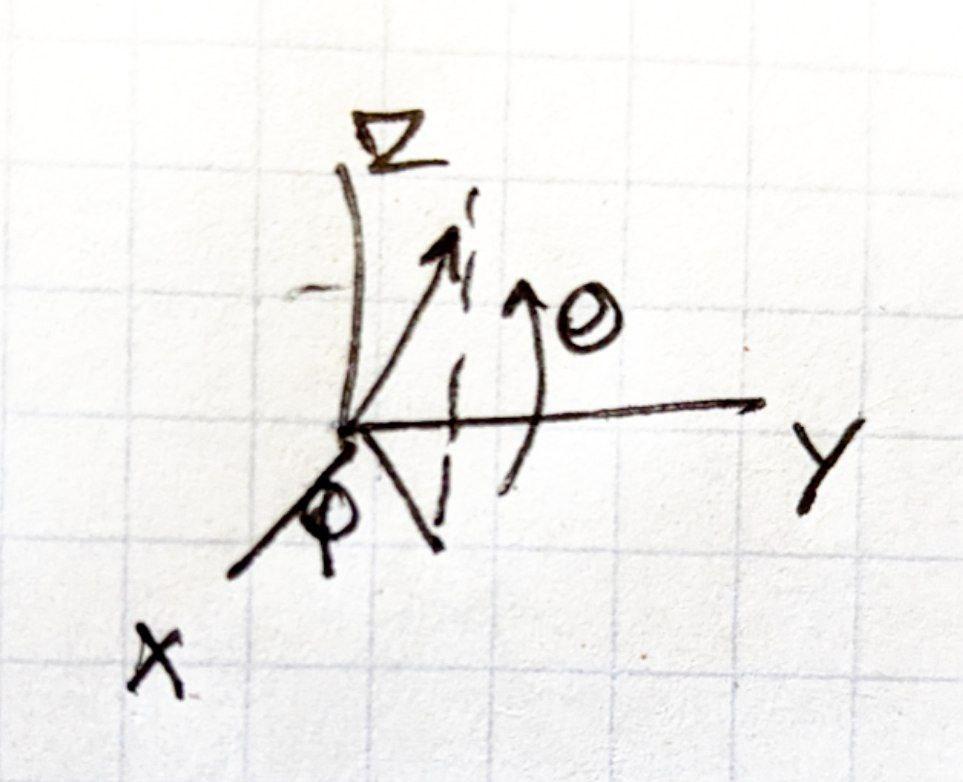 Z
θ
Y
φ
X